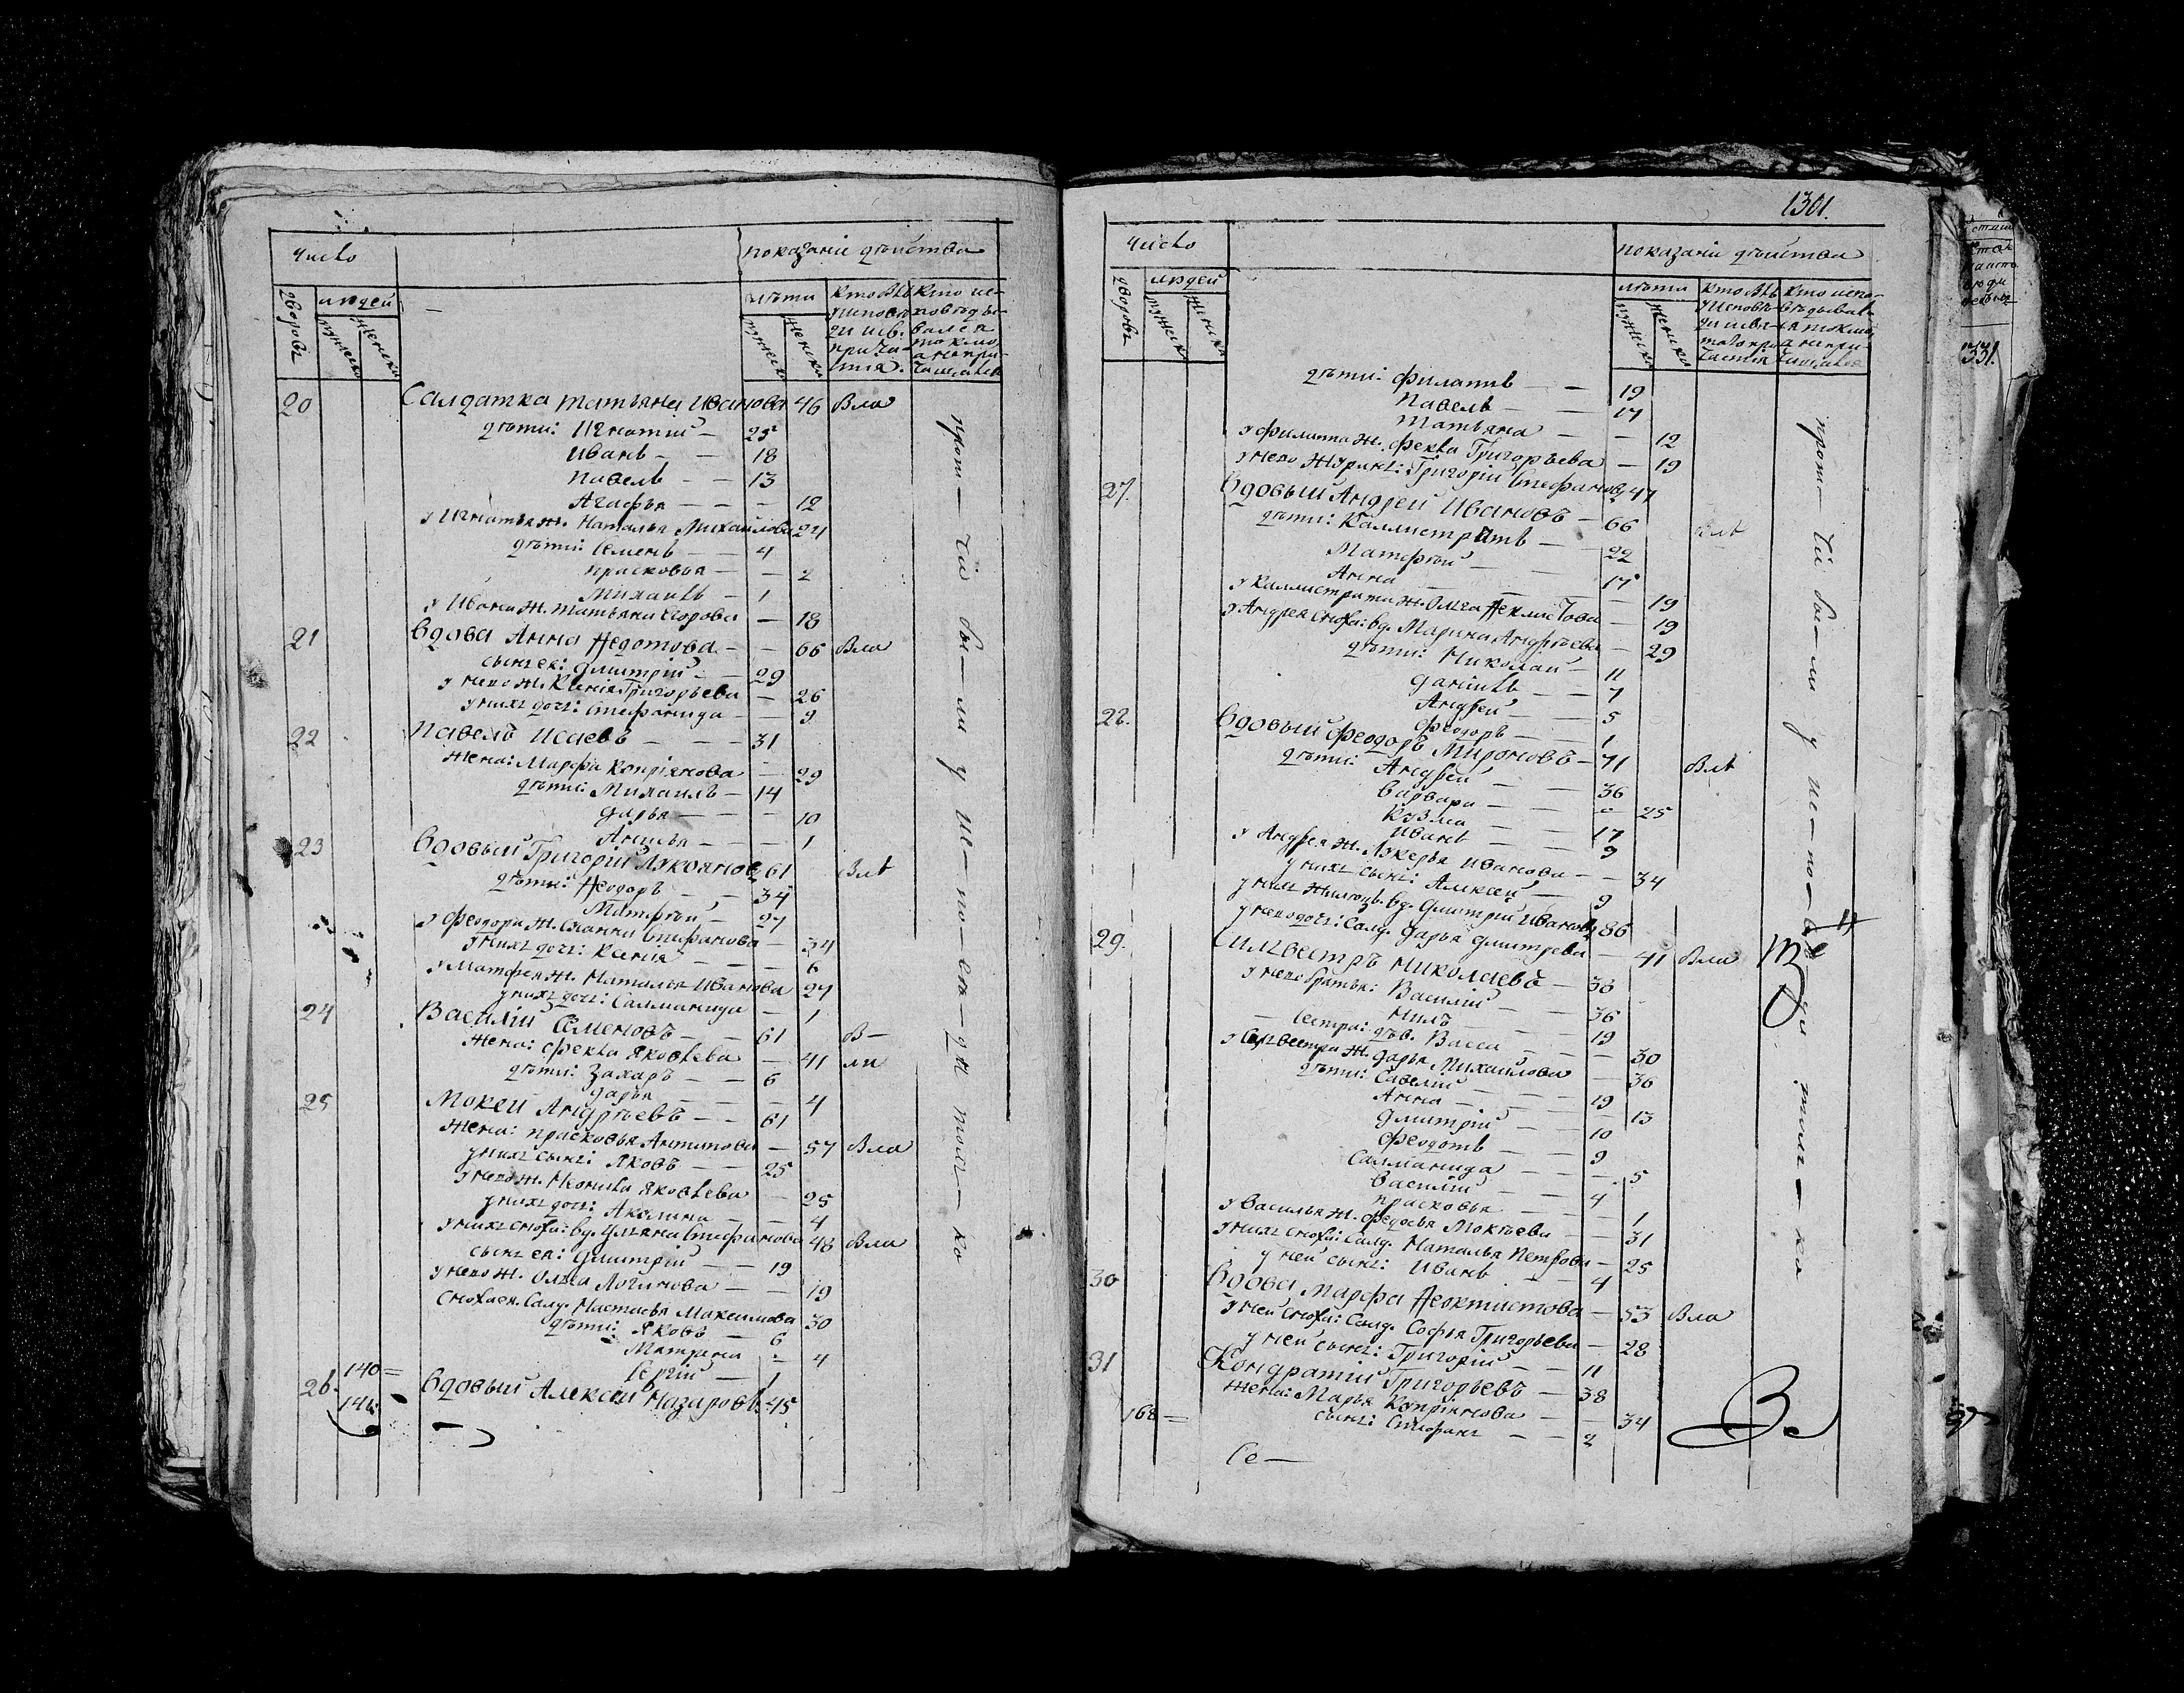 число показаніи дѣйства
дворовъ людей лѣта
мужеска женска мужеска женска
20 Салдатка татьяна Иванова 46 Вла
дѣти: Игнатіи 25
Иванъ 18
павелъ 13
Агафья 12
у Игнатья ж. Наталья Михайлова 24
дѣти: Семенъ 4
прасковья 2
Михаилъ 1
у Ивана ж. татьяна Егорова 18
21 Вдова Анна Ѳедотова 66 Вла
сынъ ея: дмитріи 29
у него ж. Ксенія Григорьева 26
у нихъ дочь: Стефанида 9
22 павелъ Исаевъ 31
жена: Марфа Кипріянова 29
дѣти: Михаилъ 14
дарья 10
Анисья 1
23 Вдовыи Григоріи Лукояновъ 61 Влѣ
дѣти: Ѳеодоръ 34
Матфѣй 27
у Феодора ж. Стефанова 34
у нихъ дочь: Ксенія 6
у Матфея ж. Наталья Иванова 27
у нихъ дочь: Саламанида 1
24 Василіи Семеновъ 61 В
жена: Фекла Яковлева 41 ли
дѣти: Захаръ 6
дарья 4
25 Мокей Андрѣевъ 61
жена: прасковья Антипова 57 Вла
у нихъ сынъ: Яковъ 25
у него ж. Неонила Яковлева 25
у нихъ дочь: Акилина 4
у нихъ сноха: вд. Ульяна Стефанова 48 Вла
сынъ ея: дмитріи 19
у него ж. Олга Логинова 19
сноха ея. Салд. Настасья Максимова 30
дѣти: Яковъ 6
Матрена 4
140 Сергіи 1
26 Вдовыи Алексѣи Назаровъ 45
146
проти чіи бы ли у и по вѣ ди толь ко
1301.
число показаніи дѣйства
дворовъ людей лѣта
мужеска женска мужеска женска
дѣти: филатъ 19
павелъ 17
татьяна 12
у филата ж. фекла Григорьева 19
у него жилецъ: Григоріи Стефановъ 47
27. Вдовыи Андрей Ивановъ 66 Влѣ
дѣти: Каллистратъ 22
Матфѣй 17
Анна 19
у Каллистрата ж. Олга 19
у Андрея сноха: вд. Марина Андрѣева 29
дѣти: Николай 11
даніилъ 7
Андрей 5
феодоръ 1
28. Вдовыи феодоръ Мироновъ 71 Влѣ
дѣти: Андрей 36
варвара 25
Кузма 17
Иванъ 9
у Андрея ж. Лукерья Иванова 34
у нихъ сынъ: Алексѣй 9
у нихъ жилецъ вд. дмитріи Ивановъ 86
у него дочь: Салд. дарья дмитрева 41 Вла
29. Силвестръ Николаевъ 38
у него братья: Василіи 36
Нилъ 19
сестра: дѣв. Васса 30
у Силвестра ж. дарья Михайлова 36
дѣти: Савелій 19
Анна 13
дмитріи 10
феодотъ 9
Саламанида 5
Василіи 4
прасковья 1
у Василья ж. федосья Мокѣева 31
у нихъ сноха: Салд. Наталья Петрова 25
у ней сынъ: Иванъ 4
30 Вдова Марфа Ѳеоктистова 53 Вла
у ней сноха: Салд. Софья Григорьева 28
у ней сынъ: Григоріи 11
31 Кондратіи Григорьевъ 38
жена: Марья Кипріянова 34
168 сынъ: Стефанъ 2
Се
проти чіи бы ли у и по вѣ ди толь ко
331.